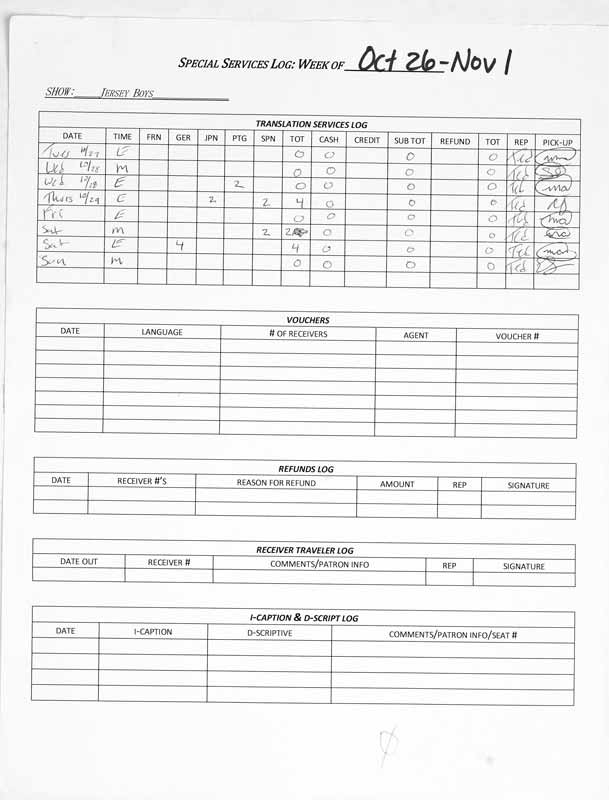 SPECIAL SERVICES LOG: WEEK OF Oct 26-Nov 1
SHOW: JERSEY BOYS
TRANSLATION SERVICES LOG
DATE TIME FRN GER JPN PTG SPN TOT CASH CREDIT SUB TOT REFUND TOT REP PICK-UP
Tues 10/27 E 0 0 0 0 Ted
Wed 10/28 M 0 0 0 0 Ted
Wed 10/28 E 2 0 0 0 0 Ted
Thurs 10/29 E 2 2 4 0 0 0 Ted
Fri E 0 0 0 0 Ted
Sat M 2 2 0 0 0 Ted
Sat E 4 4 0 0 0 Ted
Sun M 0 0 0 0 Ted
VOUCHERS
DATE LANGUAGE # OF RECEIVERS AGENT VOUCHER #
REFUNDS LOG
DATE RECEIVER #'S REASON FOR REFUND AMOUNT REP SIGNATURE
RECEIVER TRAVELER LOG
DATE OUT RECEIVER # COMMENTS/PATRON INFO REP SIGNATURE
I-CAPTION & D-SCRIPT LOG
DATE I-CAPTION D-SCRIPTIVE COMMENTS/PATRON INFO/SEAT #